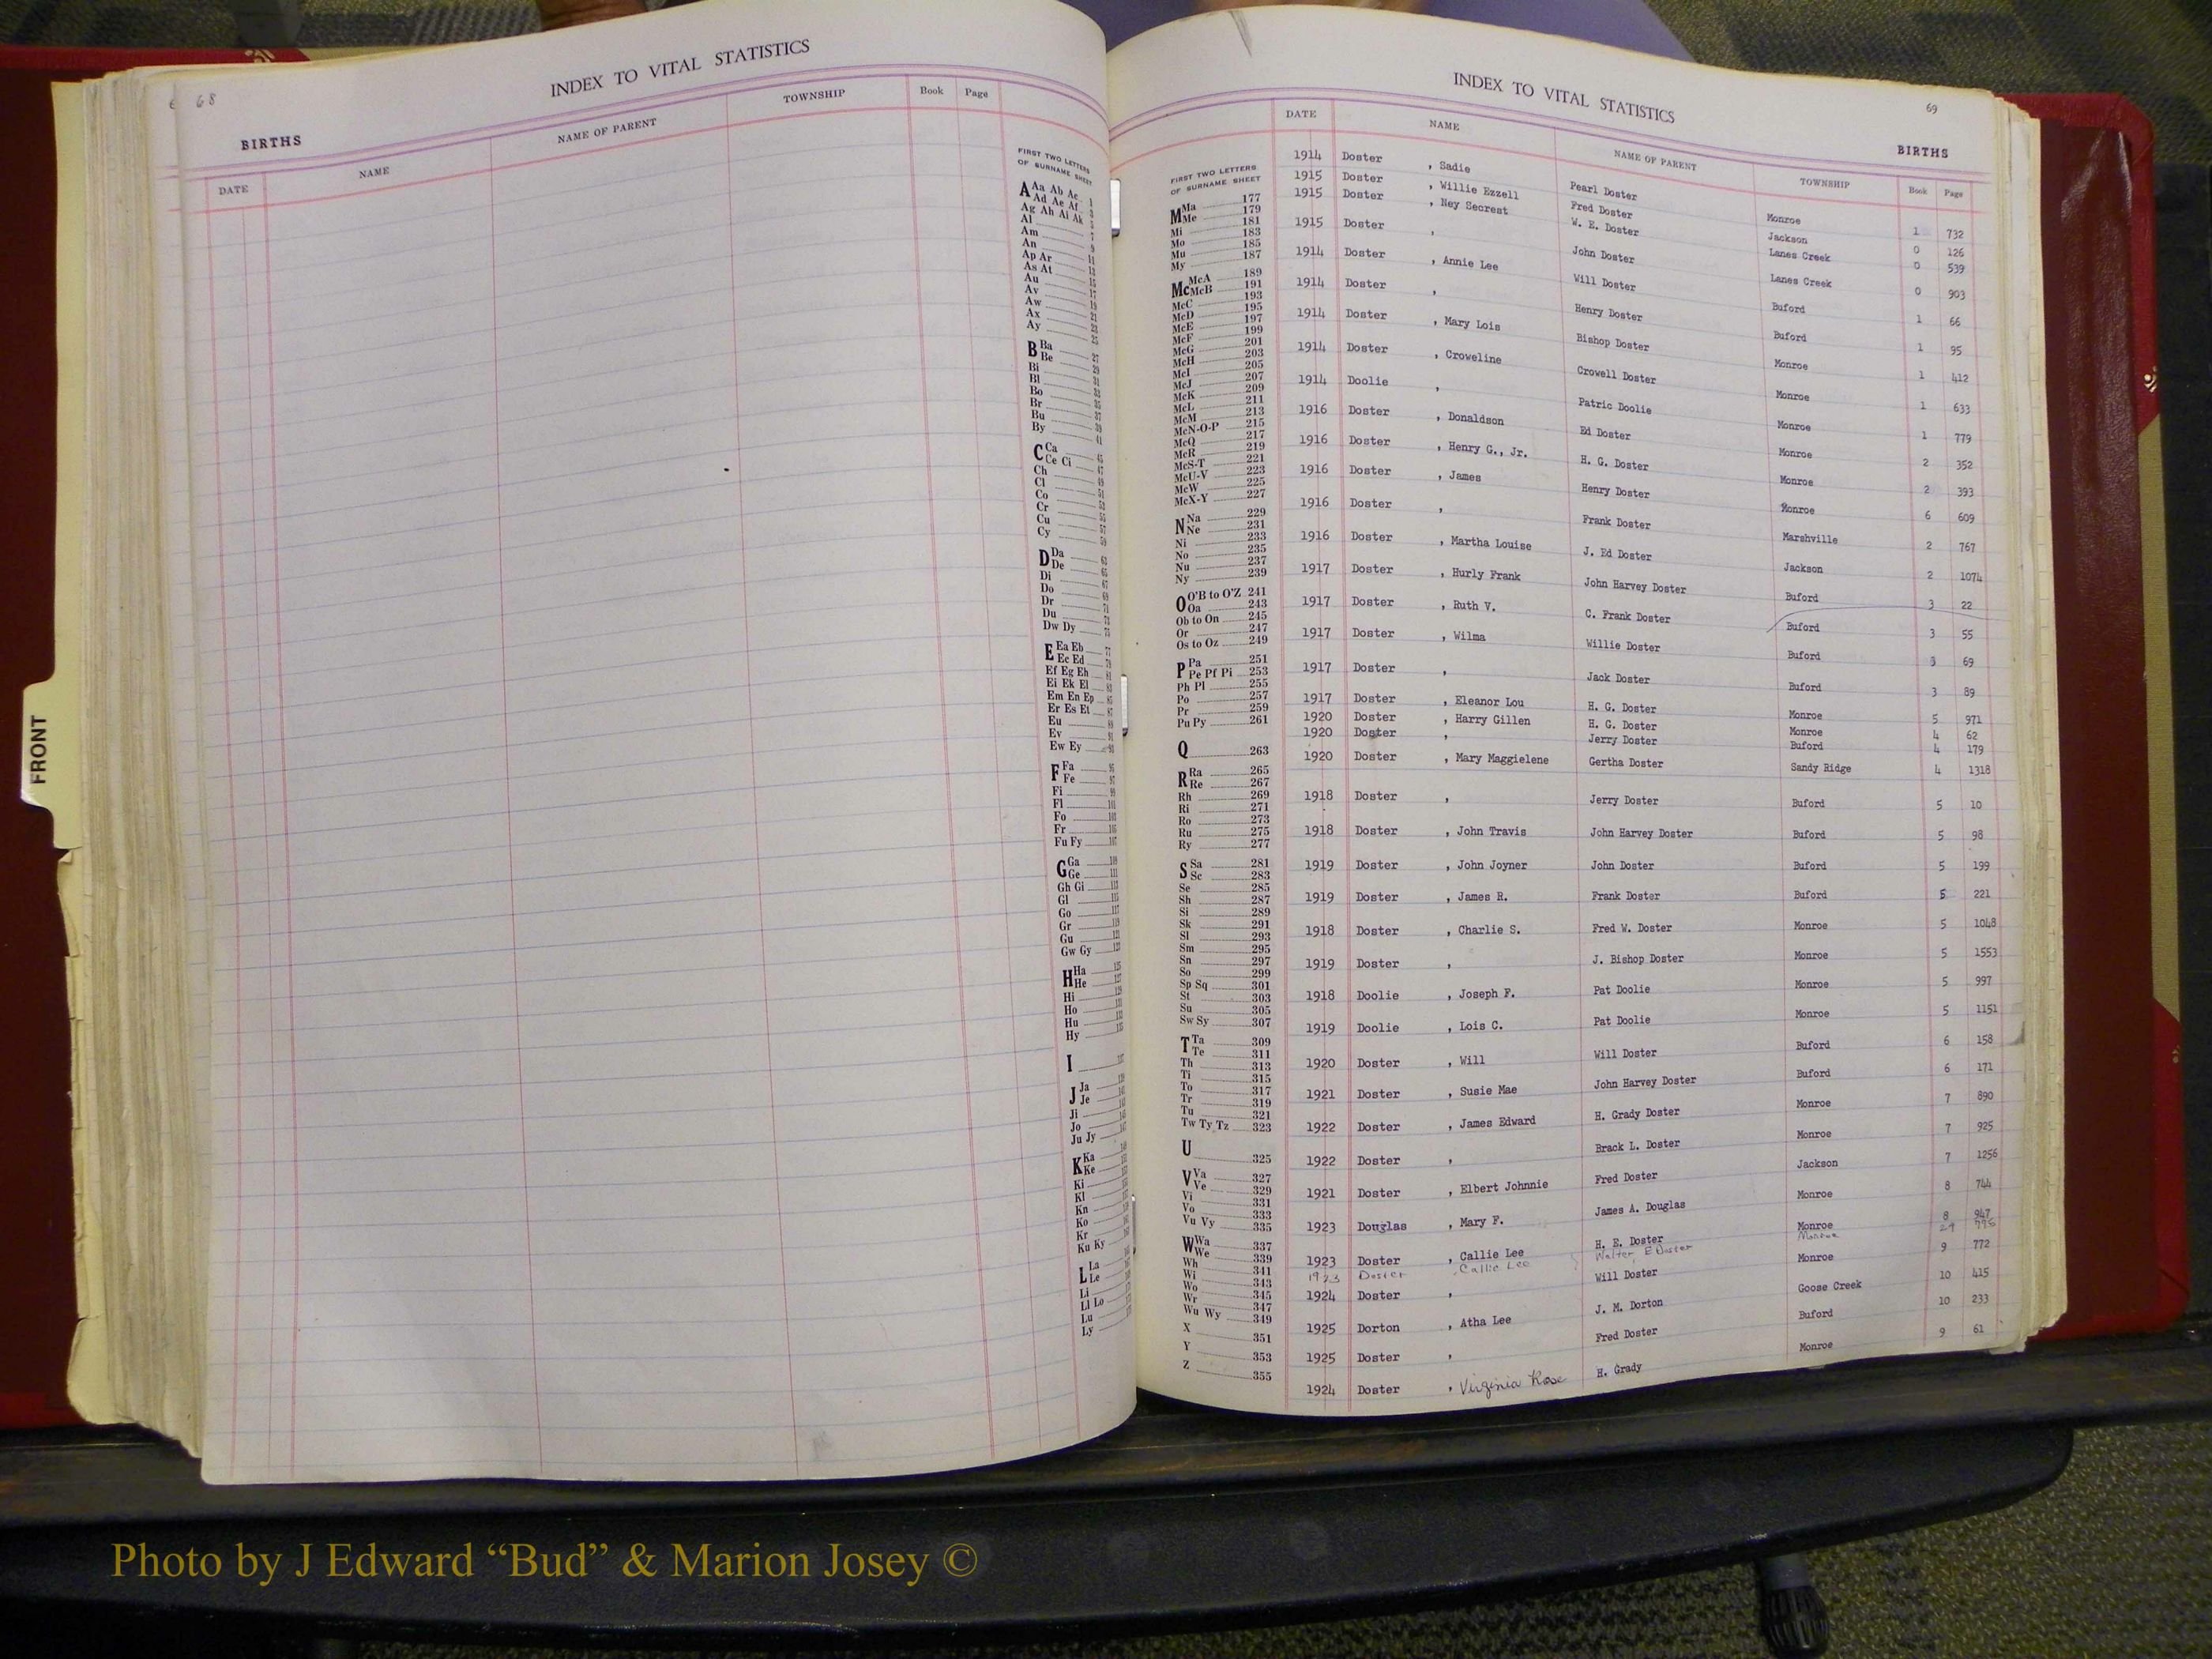 68
INDEX TO VITAL STATISTICS
BIRTHS
DATE NAME NAME OF PARENT TOWNSHIP Book Page
FIRST TWO LETTERS
OF SURNAME SHEET
A Aa Ab Ac
Ad Ae Af
Ag Ah Ai Ak
Al
Am
An
Ap Ar
As At
Au
Av
Aw
Ax
Ay
B Ba
Be
Bi
Bl
Bo
Br
Bu
By
C Ca
Ce Ci
Ch
Cl
Co
Cr
Cu
Cy
D Da
De
Di
Do
Dr
Du
Dw Dy
E Ea Eb
Ec Ed
Ef Eg Eh
Ei Ek El
Em En Ep
Er Es Et
Eu
Ev
Ew Ey
F Fa
Fe
Fi
Fl
Fo
Fr
Fu Fy
G Ga
Ge
Gh Gi
Gl
Go
Gr
Gu
Gw Gy
H Ha
He
Hi
Ho
Hu
Hy
I
J Ja
Je
Ji
Jo
Ju Jy
K Ka
Ke
Ki
Kl
Kn
Ko
Kr
Ku Ky
L La
Le
Li
Ll Lo
Lu
Ly
INDEX TO VITAL STATISTICS
69
BIRTHS
FIRST TWO LETTERS
OF SURNAME SHEET
M Ma 177
Me 179
Mi 181
Mo 183
Mu 185
My 187
Mc McA 189
McB 191
McC 193
McD 195
McE 197
McF 199
McG 201
McH 203
McI 205
McJ 207
McK 209
McL 211
McM 213
McN-O-P 215
McQ 217
McR 219
McS-T 221
McU-V 223
McW 225
McX-Y 227
N Na 229
Ne 231
Ni 233
No 235
Nu 237
Ny 239
O O'B to O'Z 241
Oa 243
Ob to On 245
Or 247
Os to Oz 249
P Pa 251
Pe Pf Pi 253
Ph Pl 255
Po 257
Pr 259
Pu Py 261
Q 263
R Ra 265
Re 267
Rh 269
Ri 271
Ro 273
Ru 275
Ry 277
S Sa 281
Sc 283
Se 285
Sh 287
Si 289
Sk 291
Sl 293
Sm 295
Sn 297
So 299
Sp Sq 301
St 303
Su 305
Sw Sy 307
T Ta 309
Te 311
Th 313
Ti 315
To 317
Tr 319
Tu 321
Tw Ty Tz 323
U 325
V Va 327
Ve 329
Vi 331
Vo 333
Vu Vy 335
W Wa 337
We 339
Wh 341
Wi 343
Wo 345
Wr 347
Wu Wy 349
X 351
Y 353
Z 355
DATE NAME NAME OF PARENT TOWNSHIP Book Page
1914 Doster , Sadie Pearl Doster Monroe 1 732
1915 Doster , Willie Ezzell Fred Doster Jackson 0 126
1915 Doster , Ney Secrest W. E. Doster Lanes Creek 0 539
1915 Doster , John Doster Lanes Creek 0 903
1914 Doster , Annie Lee Will Doster Buford 1 66
1914 Doster , Henry Doster Buford 1 95
1914 Doster , Mary Lois Bishop Doster Monroe 1 412
1914 Doster , Croweline Crowell Doster Monroe 1 633
1914 Doolie , Patric Doolie Monroe 1 779
1916 Doster , Donaldson Ed Doster Monroe 2 352
1916 Doster , Henry G., Jr. H. G. Doster Monroe 2 393
1916 Doster , James Henry Doster Monroe 6 609
1916 Doster , Frank Doster Marshville 2 767
1916 Doster , Martha Louise J. Ed Doster Jackson 2 1074
1917 Doster , Hurly Frank John Harvey Doster Buford 3 22
1917 Doster , Ruth V. C. Frank Doster Buford 3 55
1917 Doster , Wilma Willie Doster Buford 3 69
1917 Doster , Jack Doster Buford 3 89
1917 Doster , Eleanor Lou H. G. Doster Monroe 5 971
1920 Doster , Harry Gillen H. G. Doster Monroe 4 62
1920 Doster , Jerry Doster Buford 4 179
1920 Doster , Mary Maggielene Gertha Doster Sandy Ridge 4 1318
1918 Doster , Jerry Doster Buford 5 10
1918 Doster , John Travis John Harvey Doster Buford 5 98
1919 Doster , John Joyner John Doster Buford 5 199
1919 Doster , James R. Frank Doster Buford 5 221
1918 Doster , Charlie S. Fred W. Doster Monroe 5 1048
1919 Doster , J. Bishop Doster Monroe 5 1553
1918 Doolie , Joseph F. Pat Doolie Monroe 5 997
1919 Doolie , Lois C. Pat Doolie Monroe 5 1151
1920 Doster , Will Will Doster Buford 6 158
1921 Doster , Susie Mae John Harvey Doster Buford 6 171
1922 Doster , James Edward H. Grady Doster Monroe 7 890
1922 Doster , Brack L. Doster Monroe 7 925
1921 Doster , Elbert Johnnie Fred Doster Jackson 7 1256
1923 Douglas , Mary F. James A. Douglas Monroe 8 744
1923 Doster , Callie Lee H. E. Doster Monroe 8 947
1923 Doster Callie Lee Walter E Doster Monroe 29
1924 Doster , Will Doster Monroe 9 772
1925 Dorton , Atha Lee J. M. Dorton Goose Creek 10 415
1925 Doster , Fred Doster Buford 10 233
1924 Doster , Virginia Rose H. Grady Monroe 9 61
FRONT
Photo by J Edward “Bud” & Marion Josey ©